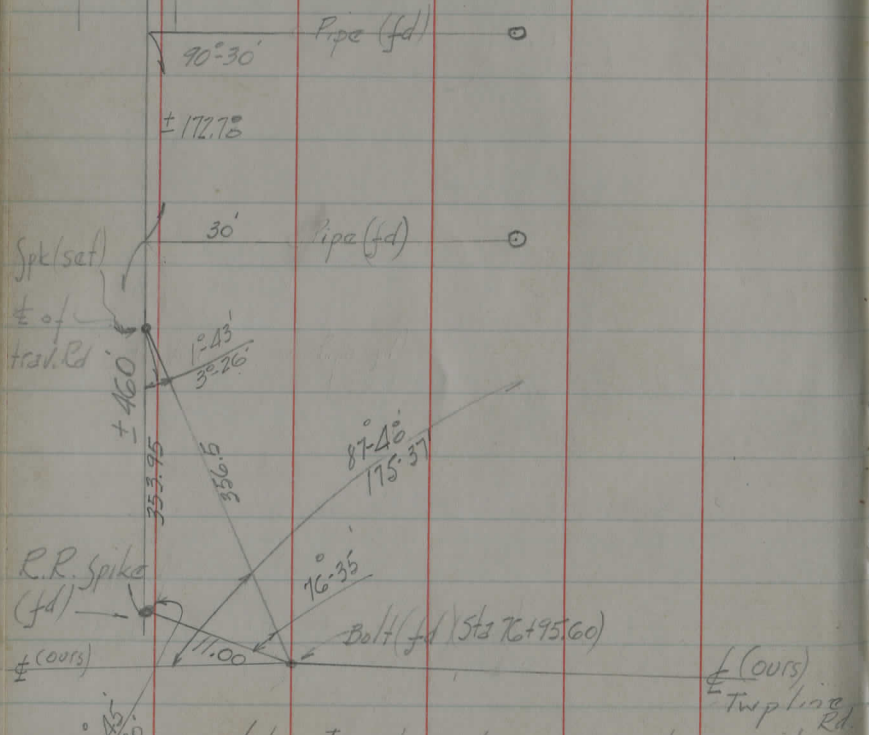 Pipe (fd)
90°-30'
± 172.78
30'
Pipe (fd)
Spk (set)
℄ of
trav. Rd
1°-43'
3°-26'
± 460'
353.95
356.5
175°-37'
76°-35'
R.R. Spike
(fd)
Bolt (fd) (Sta 76+95.60)
11.00
℄ (ours)
℄ (ours)
Twp line
Rd.